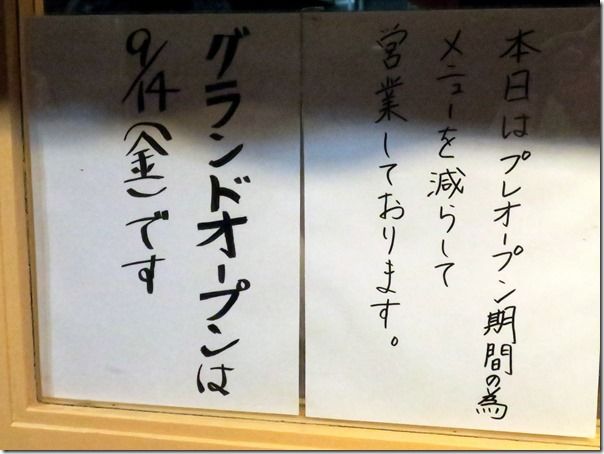 本日はプレオープン期間の為
メニューを減らして
営業しております。
グランドオープンは
9/14(金)です